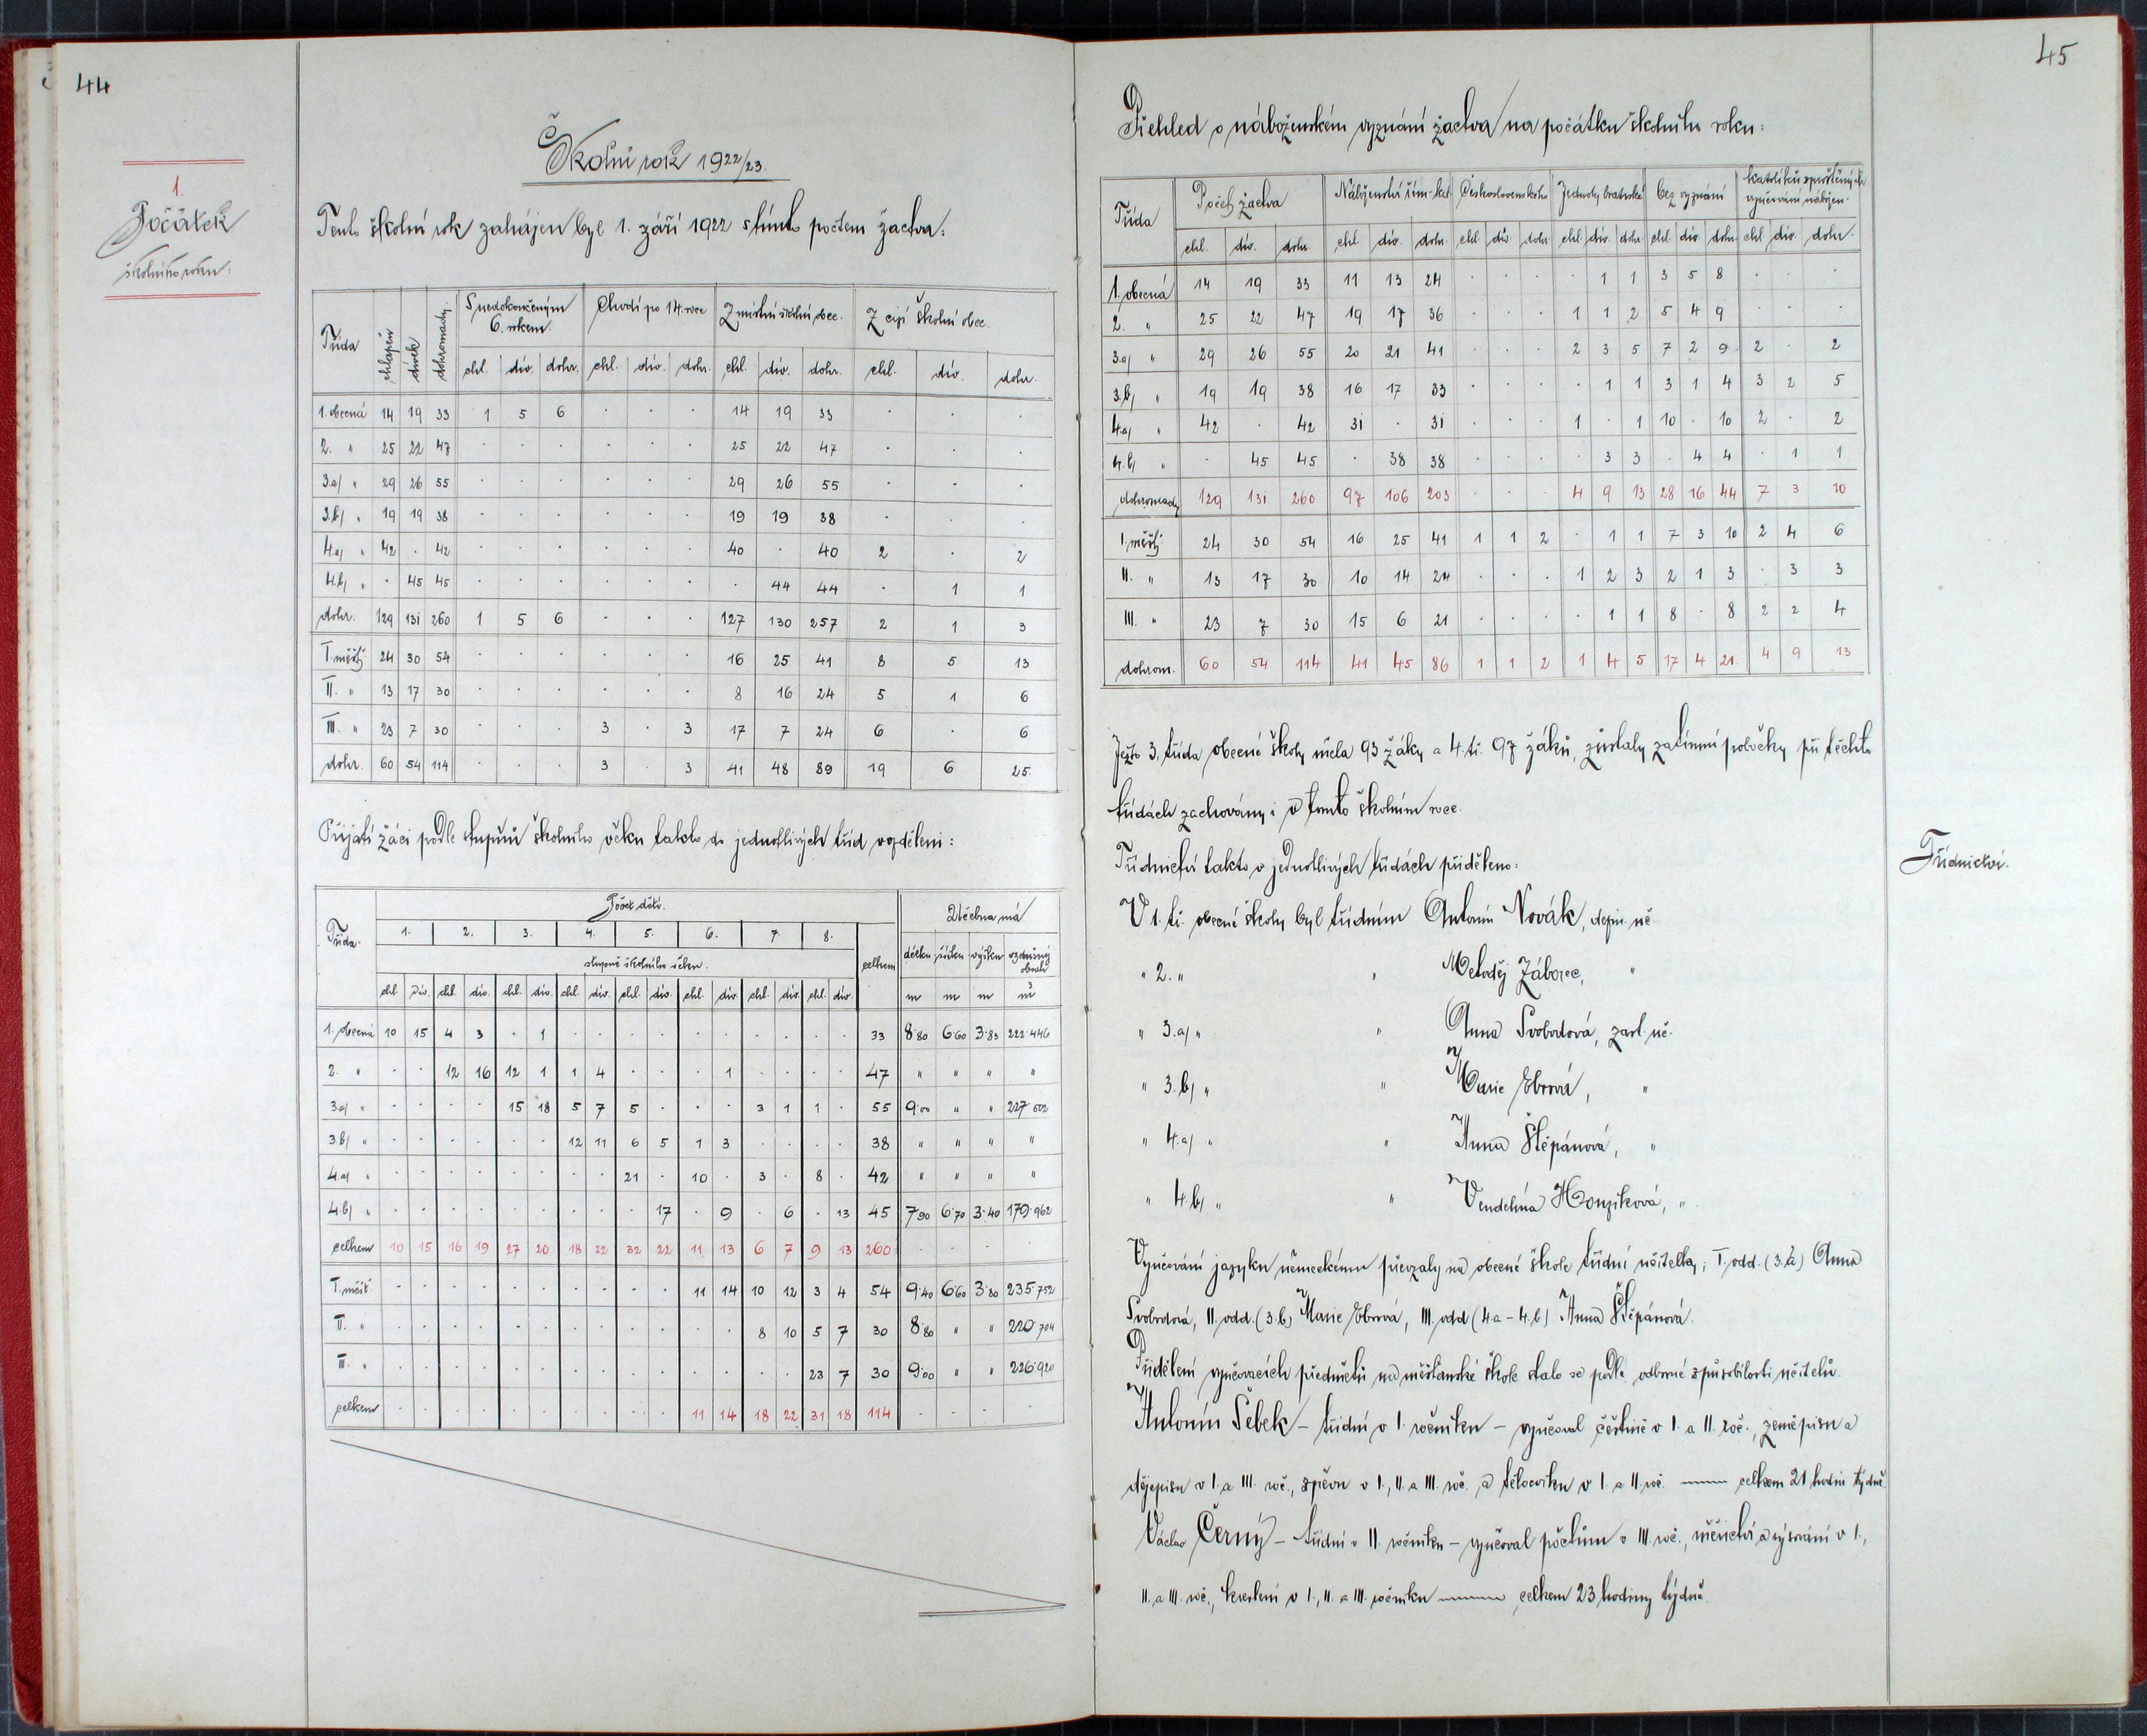 44
1.
Počátek
školního roku:
Školní rok 1922/23.
Tento školní rok zahájen byl 1. září 1922 s tímto počtem žactva:
Třída chlapců dívek dohromady S nedokončeným 6. rokem. Chodí po 14. roce Z místní školní obce. Z cizí školní obce.
chl. dív. dohr. chl. dív. dohr. chl. dív. dohr. chl. dív. dohr.
1. obecná 14 19 33 1 5 6 . . . 14 19 33 . . .
2. " 25 22 47 . . . . . . 25 22 47 . . .
3.a) " 29 26 55 . . . . . . 29 26 55 . . .
3.b) " 19 19 38 . . . . . . 19 19 38 . . .
4.a) " 42 . 42 . . . . . . 40 . 40 2 . 2
4.b) " . 45 45 . . . . . . . 44 44 . 1 1
dohr. 129 131 260 1 5 6 . . . 127 130 257 2 1 3
I. měšť. 24 30 54 . . . . . . 16 25 41 8 5 13
II. " 13 17 30 . . . . . . 8 16 24 5 1 6
III. " 23 7 30 . . . 3 . 3 17 7 24 6 . 6
dohr. 60 54 114 . . . 3 . 3 41 48 89 19 6 25.
Přijatí žáci podle stupňů školního věku takto do jednotlivých tříd rozděleni:
Třída. Počet dětí. Učebna má
1. 2. 3. 4. 5. 6. 7. 8.
stupně školního věku. celkem délku šířku výšku vzdušný obsah
chl. dív. chl. dív. chl. dív. chl. dív. chl. dív. chl. dív. chl. dív. chl. dív. m m m m3
1. obecná 10 15 4 3 . 1 . . . . . . . . . . 33 8·80 6·60 3·83 222·446
2. " . . 12 16 12 1 1 4 . . . 1 . . . . 47 " " " "
3.a) " . . . . 15 18 5 7 5 . . . 3 1 1 . 55 9·00 " " 227·502
3.b) " . . . . . . 12 11 6 5 1 3 . . . . 38 " " " "
4.a) " . . . . . . . . 21 . 10 . 3 . 8 . 42 " " " "
4.b) " . . . . . . . . . 17 . 9 . 6 . 13 45 7·90 6·70 3·40 179·962
celkem 10 15 16 19 27 20 18 22 32 22 11 13 6 7 9 13 260 . . . .
I. měšť. . . . . . . . . . . 11 14 10 12 3 4 54 9·40 6·60 3·80 235·752
II. " . . . . . . . . . . . . 8 10 5 7 30 8·80 " " 220·704
III. " . . . . . . . . . . . . . . 23 7 30 9·00 " " 226·920
celkem . . . . . . . . . . 11 14 18 22 31 18 114 . . . .
45
Přehled o náboženském vyznání žactva na počátku školního roku:
Třída Počet žactva Náboženství řím-kat. Československého Jednoty bratrské bez vyznání katolíků sproštěných vyučování nábožen.
chl. dív. dohr. chl. dív. dohr. chl. dív. dohr. chl. dív. dohr. chl. dív. dohr. chl. dív. dohr.
1. obecná 14 19 33 11 13 24 . . . . 1 1 3 5 8 . . .
2. " 25 22 47 19 17 36 . . . 1 1 2 5 4 9 . . .
3.a) " 29 26 55 20 21 41 . . . 2 3 5 7 2 9 2 . 2
3.b) " 19 19 38 16 17 33 . . . . 1 1 3 1 4 3 2 5
4.a) " 42 . 42 31 . 31 . . . 1 . 1 10 . 10 2 . 2
4.b) " . 45 45 . 38 38 . . . . 3 3 . 4 4 . 1 1
dohromady 129 131 260 97 106 203 . . . 4 9 13 28 16 44 7 3 10
I. měšť. 24 30 54 16 25 41 1 1 2 . 1 1 7 3 10 2 4 6
II. " 13 17 30 10 14 24 . . . 1 2 3 2 1 3 . 3 3
III. " 23 7 30 15 6 21 . . . . 1 1 8 . 8 2 2 4
dohrom. 60 54 114 41 45 86 1 1 2 1 4 5 17 4 21. 4 9 13
Ježto 3. třída obecné školy měla 93 žáky a 4. tř. 97 žáků, zůstaly zatímní pobočky při těchto
třídách zachovány i v tomto školním roce.
Třídnictví.
Třídnictví takto v jednotlivých třídách přiděleno:
V 1. tř. obecné školy byl třídním Antonín Novák, defin. uč.
" 2. " " Metoděj Záborec, "
" 3.a) " " Anna Svobodová, zast. uč.
" 3.b) " " Marie Ebrová, "
" 4.a) " " Anna Štěpánová, "
" 4.b) " " Vendelína Honzíková, "
Vyučování jazyku německému převzaly na obecné škole třídní učitelky; I. odd. (3.a) Anna
Svobodová, II. odd. (3.b) Marie Ebrová, III. odd (4.a - 4.b) Anna Štěpánová.
Přidělení vyučovacích předmětů na měšťanské škole stalo se podle odborné způsobilosti učitelů.
Antonín Šebek – třídní v I. ročníku – vyučoval češtině v I. a II. roč., zeměpisu a
dějepisu v I. a III. roč., zpěvu v I., II. a III. roč. a tělocviku v I. a II. roč. —— celkem 21 hodin týdně.
Václav Černý – třídní v II. ročníku – vyučoval počtům v III. roč., měřictví a rýsování v I.,
II. a III. roč., kreslení v I., II. a III. ročníku —— celkem 23 hodiny týdně.